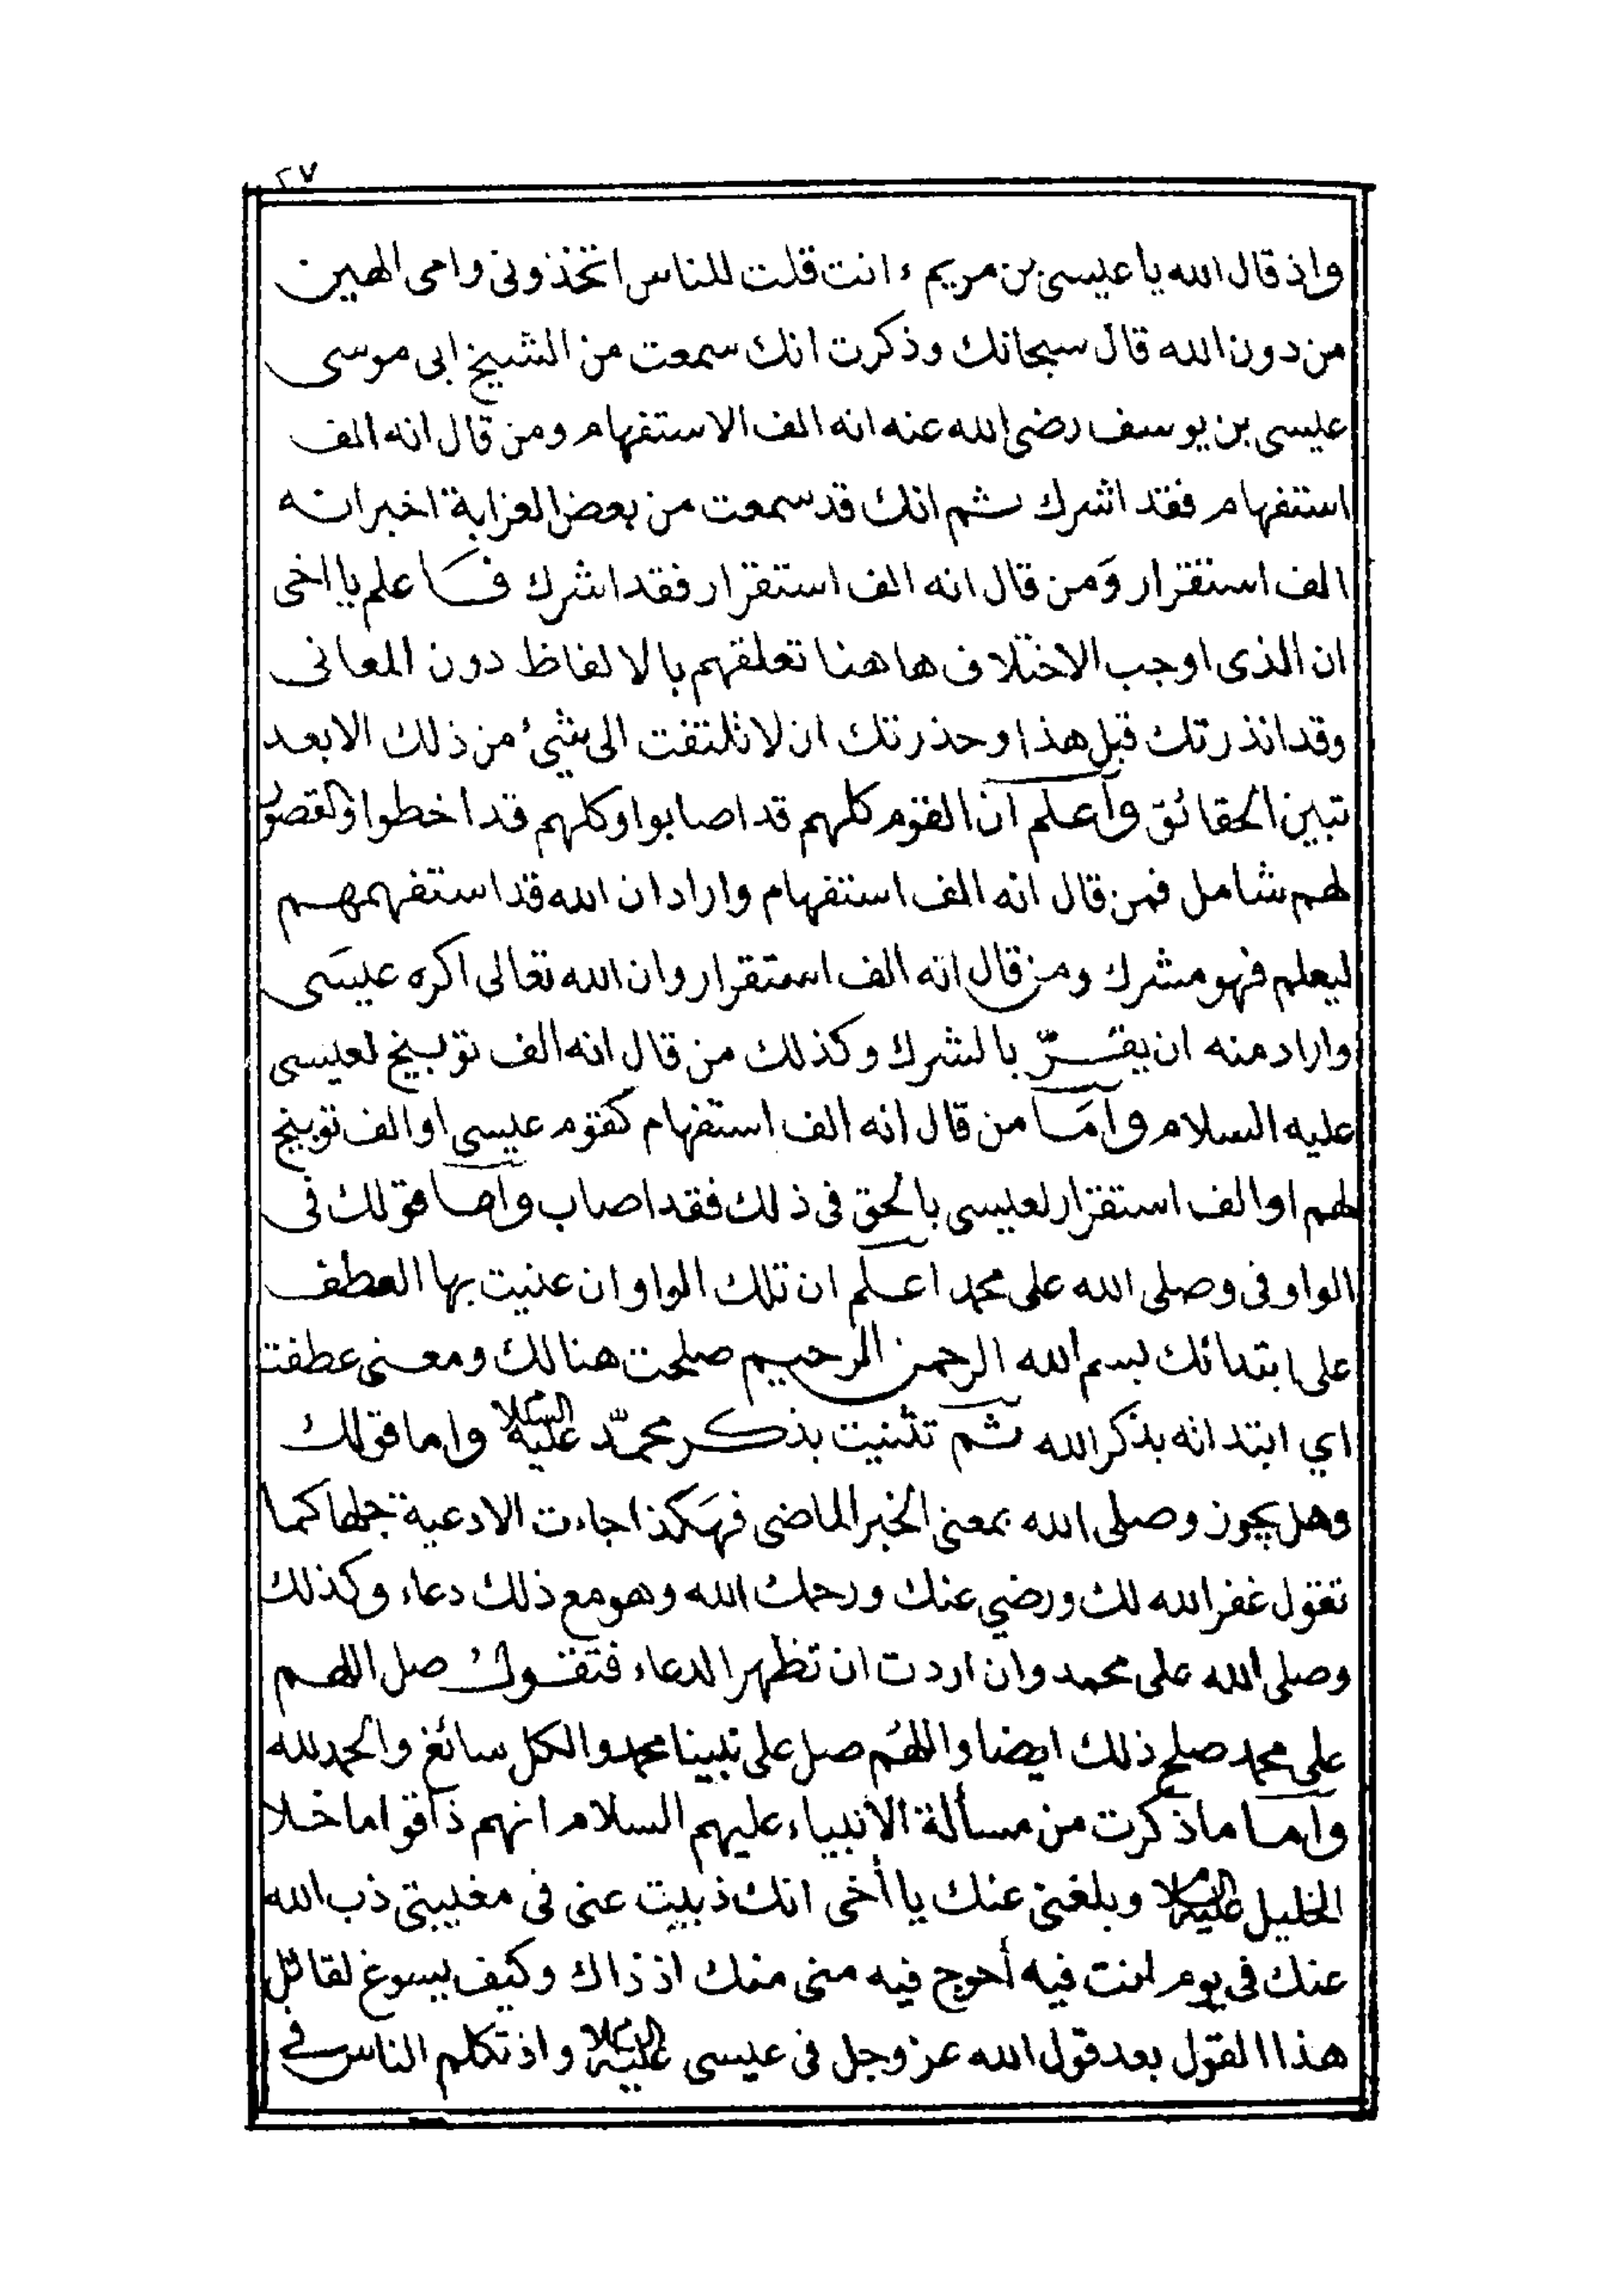 ٢٧
واذ قال الله يا عيسى بن مريم ء انت قلت للناس اتخذونى وامى الهين
من دون الله قال سبحانك وذكرت انك سمعت من الشيخ ابى موسى
عيسى بن يوسف رضى الله عنه انه الف الاستفهام ومن قال انه الف
استفهام فقد اشرك ثم انك قد سمعت من بعض العزابة اخبر انه
الف استقرار وَمن قال انه الف استقرار فقد اشرك فاعلم يا اخى
ان الذى اوجب الاختلاف هاهنا تعلقهم بالالفاظ دون المعانى
وقد انذرتك قبل هذا وحذرتك ان لا تلتفت الى شئ من ذلك الا بعد
تبين الحقائق واعلم ان القوم كلهم قد اصابوا وكلهم قد اخطوا والقصور
لهم شامل فمن قال انه الف استفهام واراد ان الله قد استفهمهم
ليعلم فهو مشرك ومن قال انه الف استقرار وان الله تعالى اكره عيسَى
واراد منه ان يقرّ بالشرك وكذلك من قال انه الف توبيخ لعيسى
عليه السلام وامَا من قال انه الف استفهام كقوم عيسى او الف توبيخ
لهم او الف استقرار لعيسى بالحق فى ذلك فقد اصاب واما قولك فى
الواو فى وصلى الله على محمد اعلم ان تلك الواو ان عنيت بها العطف
على ابتدائك بسم الله الرحمن الرحيم صلحت هنالك ومعنى عطفت
اي ابتدانه بذكر الله ثم تثنيت بذكر محمّد عليه السلا واما قولك
وهل يجوز وصلى الله بمعنى الخبر الماضى فهَكذا جاءت الادعية جلها كما
تقول غفر الله لك ورضي عنك ورحمك الله وهو مع ذلك دعاء وكذلك
وصلى الله على محمد وان اردت ان تظهر الدعاء فتقول صل اللهم
على محمد صلح ذلك ايضا واللهُم صل على نبينا محمد والكل سائغ والحمد لله
واما ما ذكرت من مسألة الأنبياء عليهم السلام انهم ذاقوا ما خلا
الخليل عليه السلا وبلغنى عنك يا أخى انك ذبيت عنى فى مغيبتى ذب الله
عنك فى يوم لنت فيه أحوج فيه منى منك اذ ذاك وكيف يسوغ لقائل
هذا القول بعد قول الله عز وجل فى عيسى عليه السلا واذ تكلم الناس في